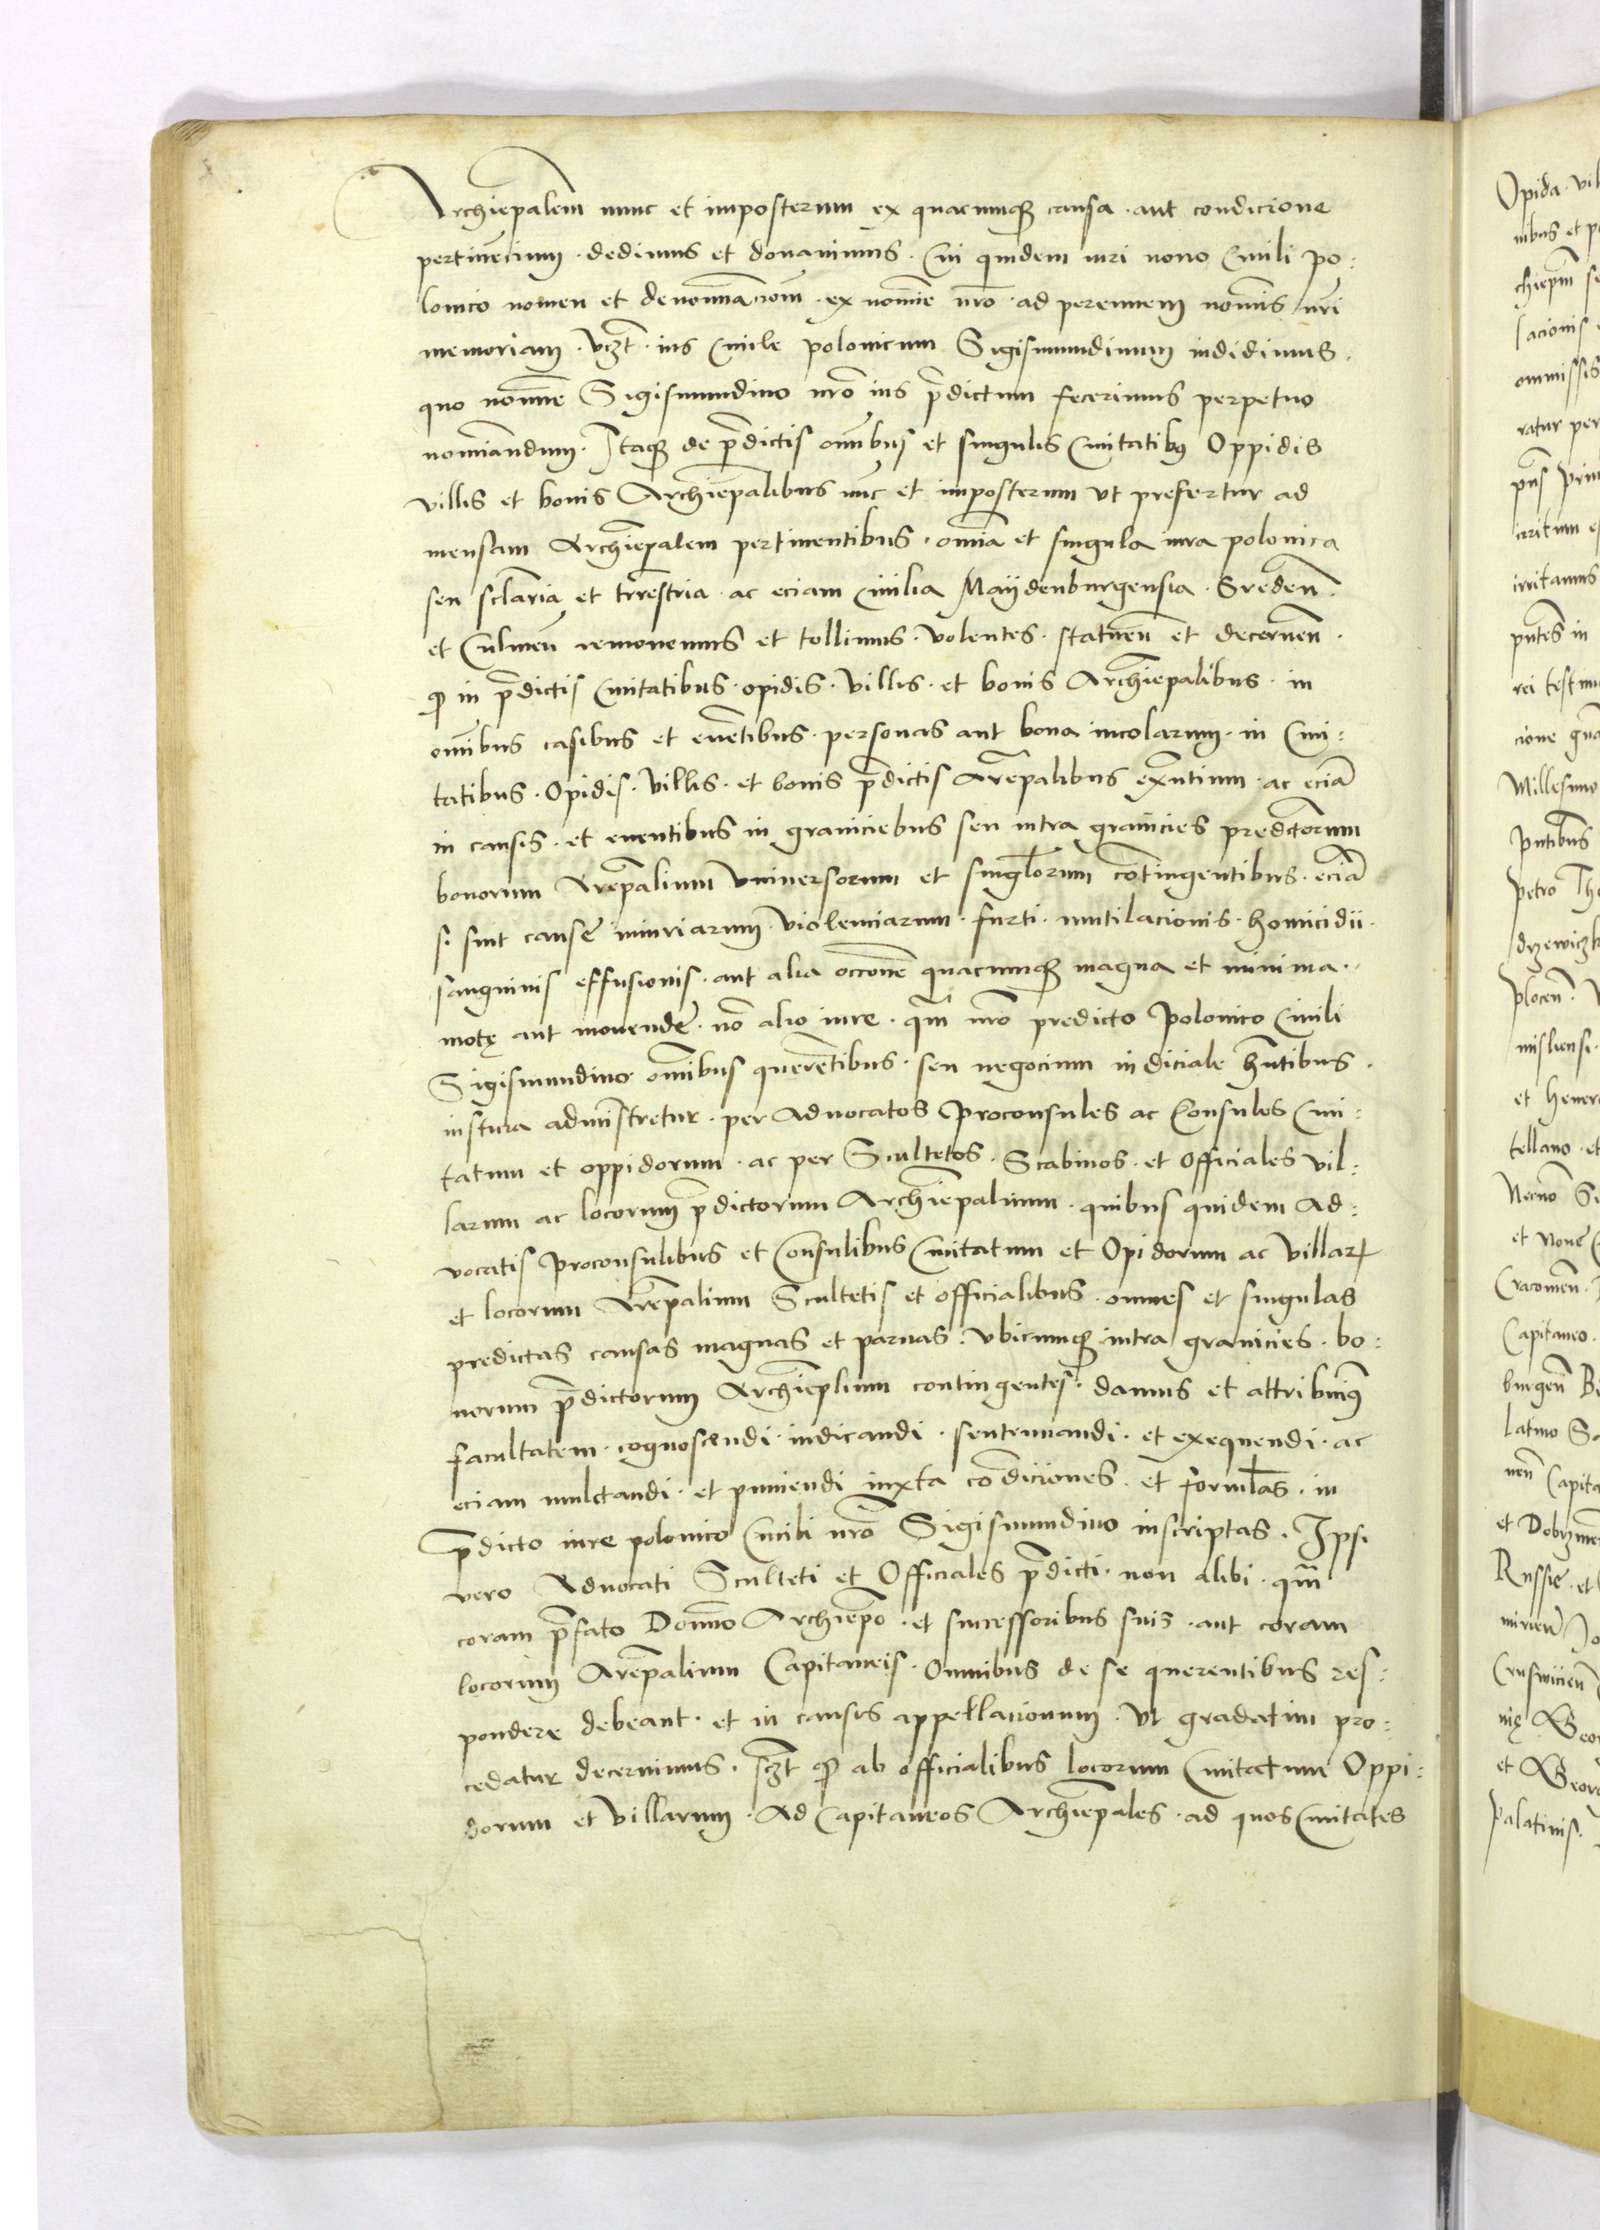 Archiepalem nunc et imposterum ex quacumque causa · aut condicione
pertinencium · dedimus et donavimus · Cui quidem iuri novo Civili po:
lonico nomen et denominacionem · ex nomine nro · ad perennem nominis nri
memoriam · vczt · ius Civile polonicum Sigismundinum indidimus ·
quo nomine Sigismundino nro ius predictum fecerimus perpetuo
nominandum · Itaque de predictis omnibus et singulis Civitatibus Oppidis
villis et bonis Archiepalibus nunc et imposterum ut prefertur ad
mensam Archiepalem pertinentibus · omnia et singula iura polonica
seu sclaria et terrestria · ac eciam Civilia Maydenburgensia · Sreden ·
et Culmen removemus et tollimus · volentes · statuen et decernen ·
quod in predictis Civitatibus · opidis · villis · et bonis Archiepalibus · in
omnibus casibus et eventibus · personas aut bona incolarum · in Civi:
tatibus · Opidis · villis · et bonis predictis Arepalibus existentium · ac eciam
in causis · et eventibus in graniciebus seu intra granicies predictorum
bonorum Arepalium universorum et singulorum contingentibus · eciam
si sint cause iniuriarum · violenciarum · furti · mutilacionis · homicidii ·
sanguinis effusionis · aut alia occone quacumque magna et minima ·
motę aut movende · non alio iure · quam nro predicto Polonico Civili
Sigismundino omnibus querentibus · seu negocium iudiciale hntibus ·
iusticia administretur · per Advocatos Proconsules ac Consules Civi:
tatum et oppidorum · ac per Scultetos · Scabinos · et Officiales vil:
larum ac locorum predictorum Archiepalium · quibus quidem Ad:
vocatis Proconsulibus et Consulibus Civitatum et Opidorum ac villar
et locorum Arepalium Scultetis et officialibus · omnes et singulas
predictas causas magnas et parvas · ubicumque intra granicies · bo:
norum predictorum Archieplium contingentes · damus et attribuimus
facultatem · cognoscendi · iudicandi · sentenciandi · et exequendi · ac
eciam mulctandi · et puniendi iuxta condiciones · et formulas · in
predicto iure polonico Civili nro Sigismundino inscriptas · Ipsi
vero Advocati Sculteti et Officiales predicti · non alibi · quam
coram prefato Domino Archiepo · et successoribus suis · aut coram
locorum Arepalium Capitaneis · Omnibus de se querentibus res:
pondere debeant · et in causis appellacionum · Ut gradatim pro:
cedatur decernimus · sczt quod ab officialibus locorum Civitatum Oppi:
dorum et villarum · Ad Capitaneos Archiepales · ad quos Civitates
Opida · vil
nibus et p
chiepm se
lacionis
ommissis
ratur per
pns prin
irritum e
irritamus
pntes in
rei testim
cione
Millesimo
pntibus
Petro Th
drzewiczk
plocen ·
misliensi ·
et Henr
tellano · et
Necno S
et Nove
Cracovien ·
Capitaneo ·
burgen B
latino Sa
nen Capita
et Dobrzinen
Russie · et
mirien Jo
Cruswicien
nię Geor
et Georg
palatinis ·